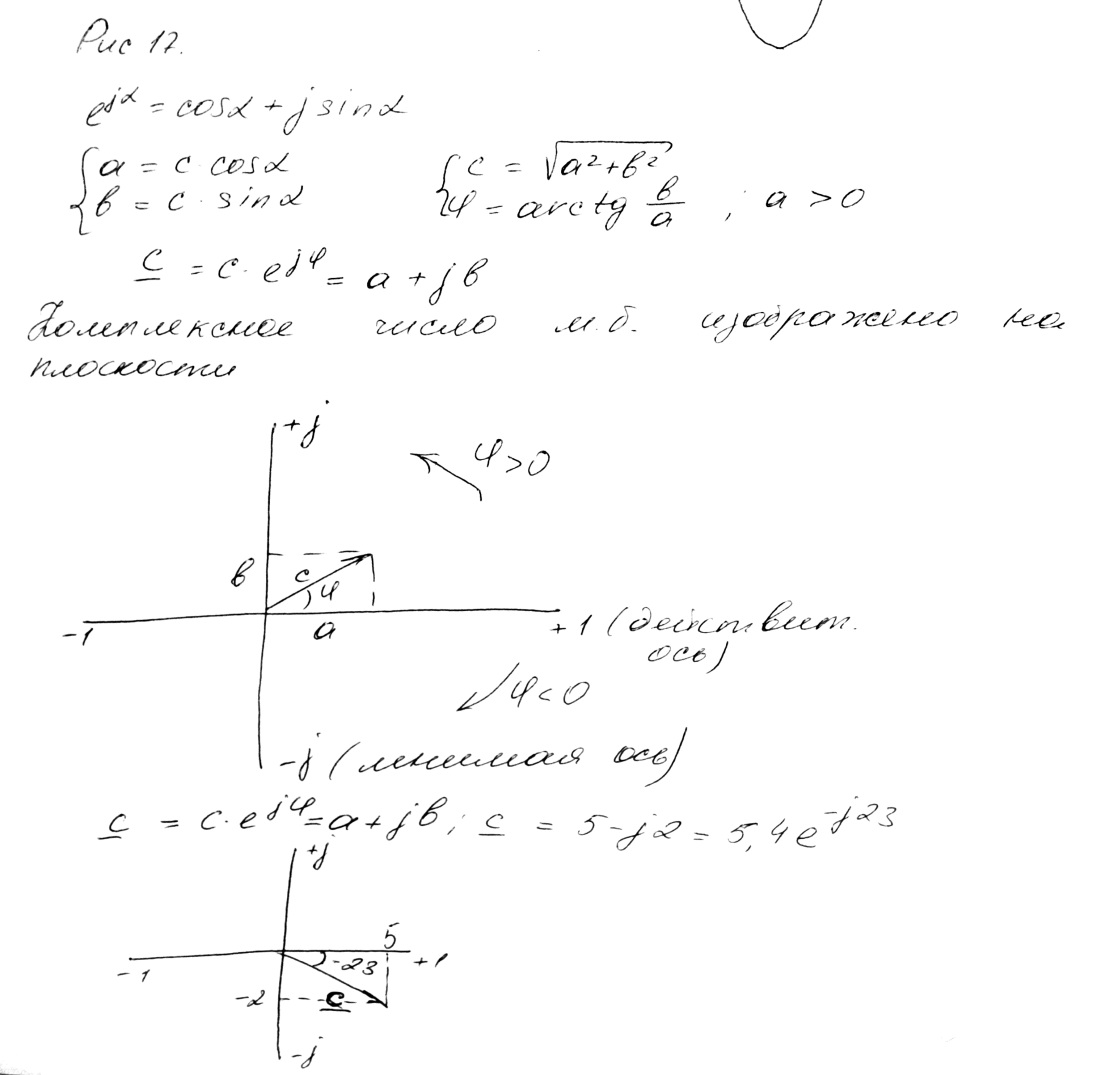 Рис 17.
e^{jα} = cosα + j sinα
{ a = c · cosα
{ в = c · sinα
{ c = √(a² + в²)
{ φ = arctg в/a , ; a > 0
c = c · e^{jφ} = a + jв
Комплексное число м.б. изображено на
плоскости
+j
φ>0
в
c
φ
-1
a
+1 (действит.
ось)
φ<0
-j (мнимая ось)
c = c·e^{jφ} = a + jв ; c = 5-j2 = 5,4e^{-j23}
+j
5
-1
-23
+1
-2
c
-j